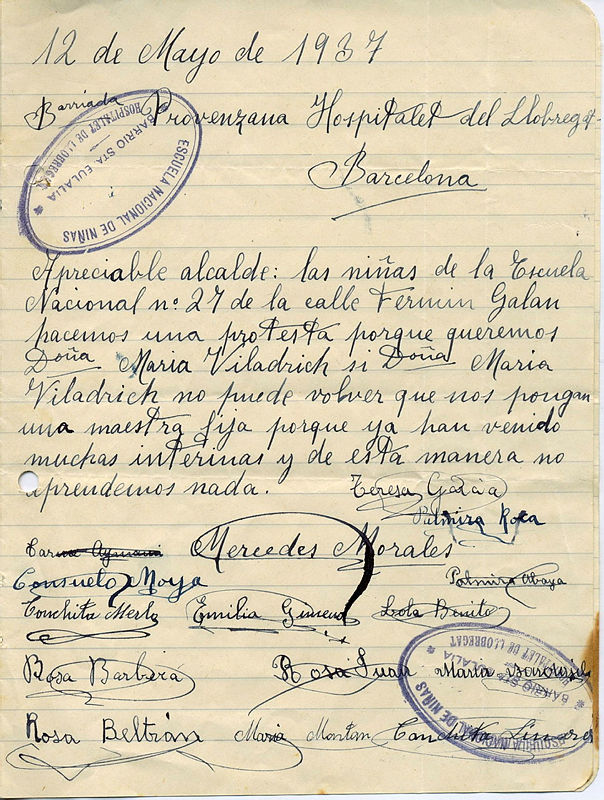 12 de Mayo de 1937
Barriada Provenzana Hospitalet del Llobregat
Barcelona
ESCUELA NACIONAL DE NIÑAS
BARRIO STA. EULALIA
HOSPITALET DE LLOBREGAT
Apreciable alcalde: las niñas de la Escuela
Nacional nº 27 de la calle Fermin Galan
hacemos una protesta porque queremos
Doña Maria Viladrich si Doña Maria
Viladrich no puede volver que nos pongan
una maestra fija porque ya han venido
muchas interinas y de esta manera no
aprendemos nada.
Teresa Garcia
Palmira Roca
Mercedes Morales
Consuelo Moya
Palmira
Conchita Merlo Emilia Gimeno Lola Benito
Rosa Barberá Rosa Juan Maria
Rosa Beltrán Maria Montan Conchita Linares
ESCUELA NACIONAL DE NIÑAS
BARRIO STA. EULALIA
HOSPITALET DE LLOBREGAT